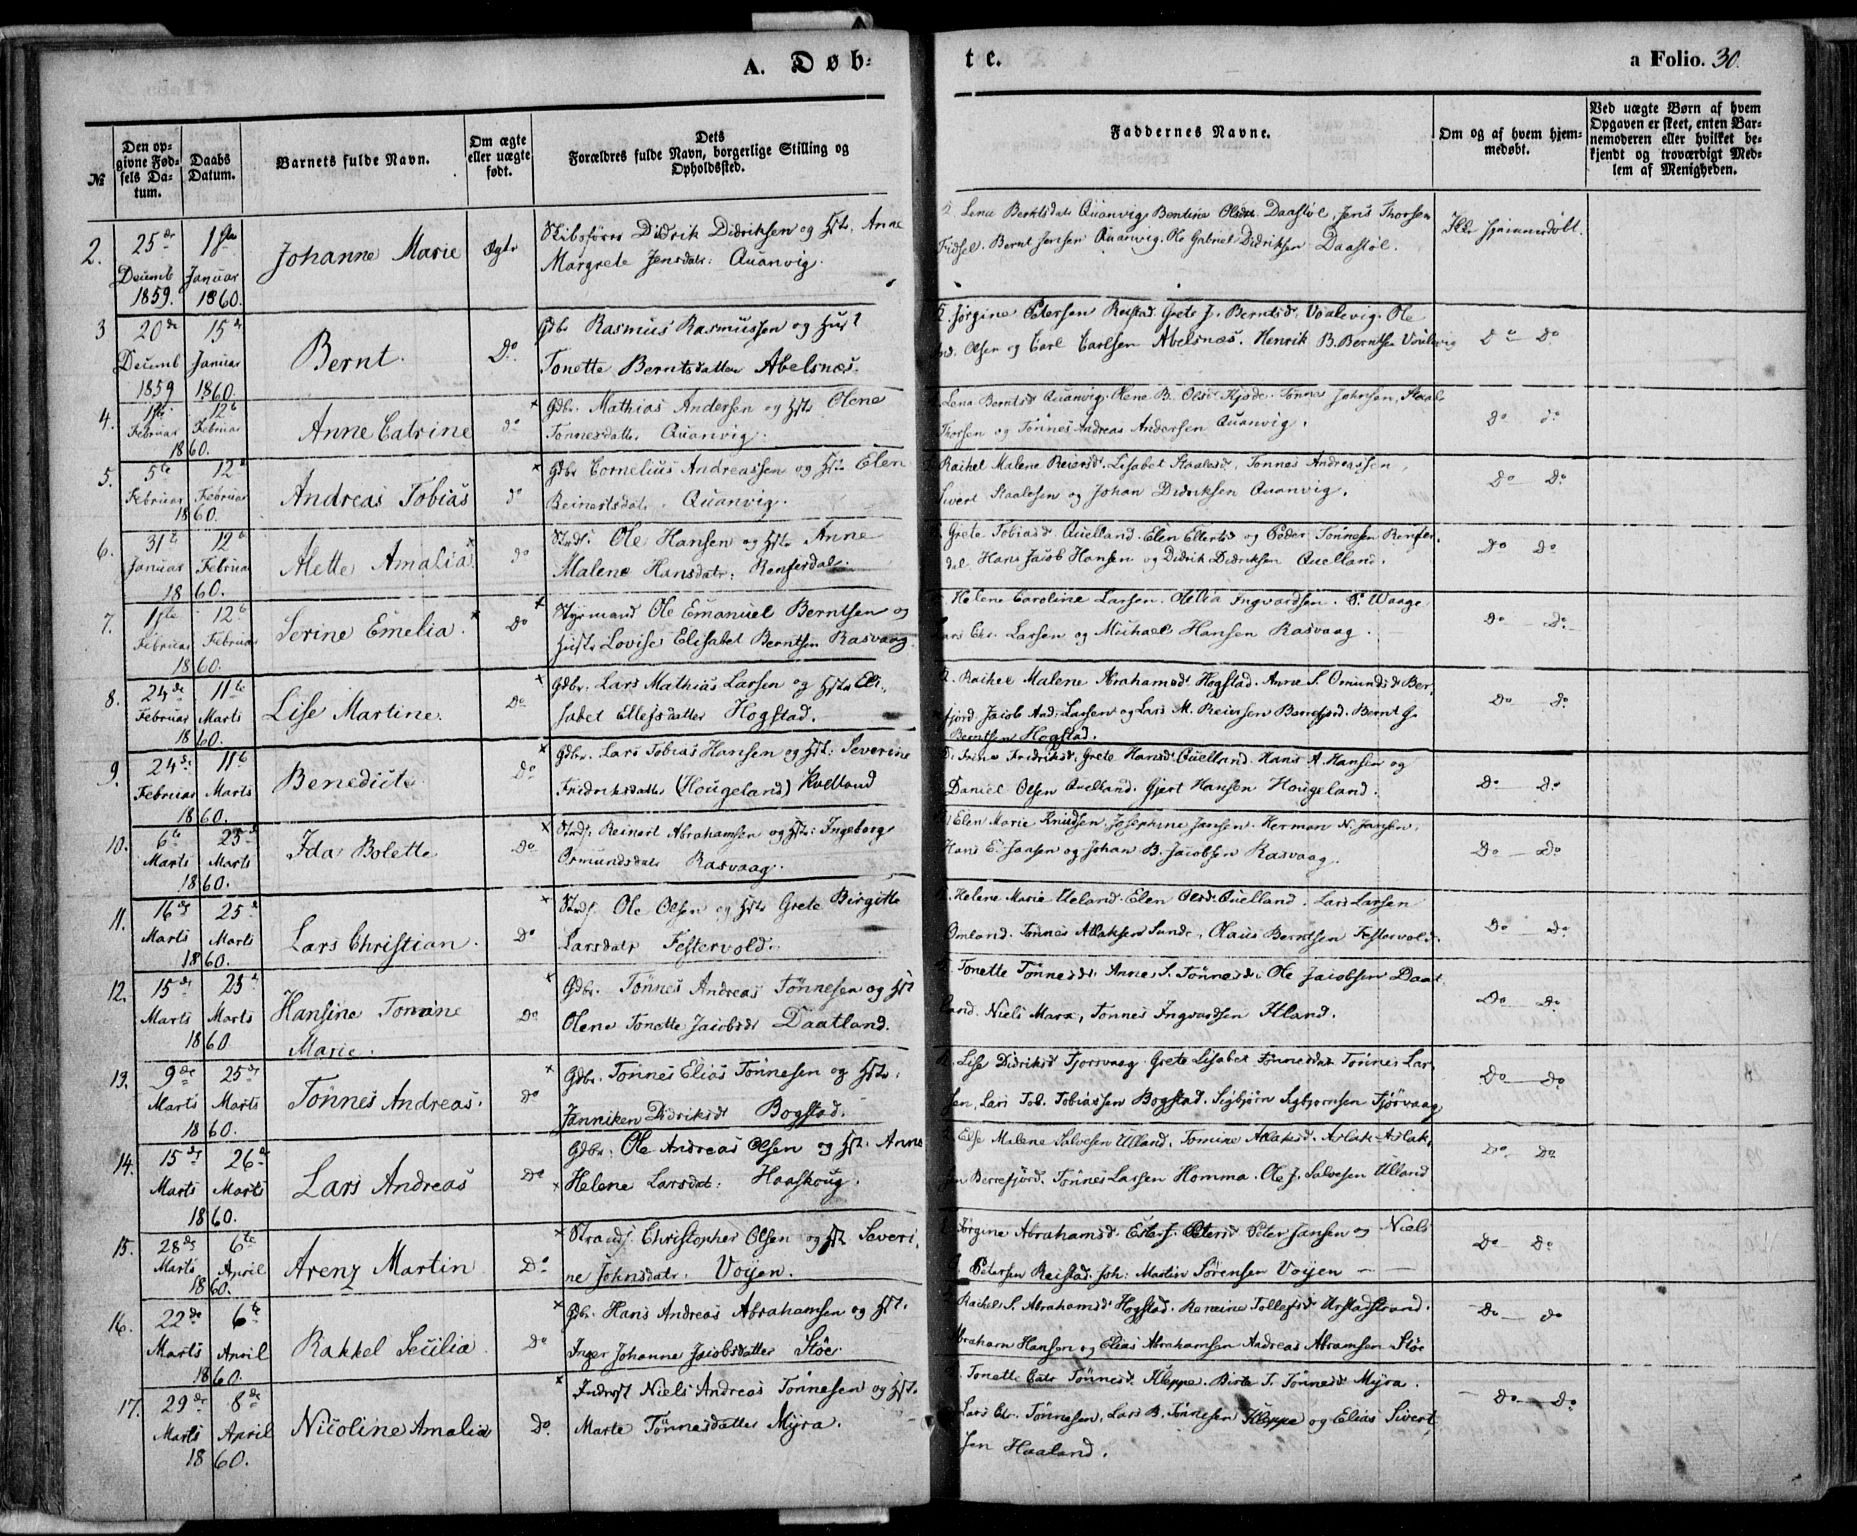 A. Døb-
te.
a Folio. 30.
№
Den op-
givne Fød-
sels Da-
tum.
Daabs
Datum.
Barnets fulde Navn.
Om ægte
eller uægte
født.
Dets
Forældres fulde Navn, borgerlige Stilling og
Opholdssted.
Faddernes Navne.
Om og af hvem hjem-
medøbt.
Ved uægte Børn af hvem
Opgaven er skeet, enten Bar-
nemoderen eller hvilket be-
kjendt og troværdigt Med-
lem af Menigheden.
2. 25de 1ste
Decemb Januar
1859. 1860.
Johanne Marie
Ægte
Skibsfører Didrik Didriksen og Hst. Anne
Margrete Jensdatr: Quanvig.
Lena Berntsdatr Quanvig, Bentine Olsdtr. Daastøl, Jens Thorsen
Fidsel. Bernt Jensen Quanvig. Ole Gabriel Didriksen Daastøl.
Ikke hjemmedøbt.
3 20de 15de
Decemb Januar
1859 1860.
Bernt.
Do.
Gdbr Rasmus Rasmussen og Hust
Tonette Berntsdatter Abelsnæs.
Jørgine Petersen Reistad. Grete J. Berntsd. Vaalevig. Ole
And. Olsen og Carl Carlsen Abelsnæs. Henrik B. Berntsen
Do Do
4. 1ste 12te
Februar Februar
1860.
Anne Catrine
do
Gdbr. Mathias Andersen og Hst. Olene
Tønnesdatter Quanvig.
Lena Berntsd Quanvig. Olene B. Olsdt. Tønnes Johnsen, Staale
Thorsen og Tønnes Andreas Andersen Quanvig.
Do do.
5. 5te 12te
Februar Februar
1860.
Andreas Tobias
do
Gdbr Cornelius Andreassen og Hst. Elen
Reinertsdatr. Quanvig.
Raihel Malene Reiersd. Lisabet Staalesd. Tønnes Andreassen,
Sivert Staalesen og Johan Didriksen Quanvig.
Do Do.
6. 31te 12te
Januar Februar
1860.
Mette Amalia
do
Strds: Ole Hansen og Hst. Anne
Malene Hansdatr: Renfersdal.
Grete Tobiasd Quelland. Elen Ellertsd og Peder Tønnesen Renfer-
dal. Hans Jacob Hansen og Didrik Didriksen Quelland.
Do Do
7. 1ste 12te
Februar Februar
1860.
Serine Emelia.
Do
Styrmand Ole Emanuel Berntsen og
Hust. Lovise Elisabet Berntsen Rasvaag
Helene Caroline Larsen. Ingvardsen. P. Waage.
Lars Chr. Larsen og Michael Hansen Rasvaag.
Do Do.
8. 24de 11te
Februar Marts
1860.
Lise Martine.
Do
Gdbr. Lars Mathias Larsen og Hst. Eli-
sabet Ellefsdatter Hogstad.
Raihel Malene Abrahamsd. Hogstad. Anne S. Omundsd Ber-
refjord. Jacob And. Larsen og Lars M. Reiersen Berrefjord. Bernt G.
Berntsen Hogstad.
Do do
9. 24de 11te
Februar Marts
1860.
Benedicte.
Do
Gdbr. Lars Tobias Hansen og Hst. Severine
Fredriksdatter (Hougeland) Kvelland
Trine Fredriksd. Grete Hansd Quelland. Hans A. Hansen og
Daniel Olsen Quelland. Gjert Hansen Hougeland.
Do Do
10. 6te 25de
Marts Marts
1860.
Ida Bolette
Do
Strds: Reinert Abrahamsen og Hst: Ingeborg
Osmundsdatr Rasvaag.
Elen Marie Knudsen, Josephine Jansen. Herman N. Jansen,
Hans E. Jansen og Johan B. Jacobsen Rasvaag.
Do Do.
11. 16de 25de
Marts Marts
1860.
Lars Christian.
Do
Strds. Ole Olsen og Hst. Grete Birgitte
Larsdatr Festervold.
Helene Marie Ueland. Elen Olsd. Quelland. Lars Larsen
Omland. Tønnes Atlaksen Sunde, Olaus Berntsen Festervold.
Do Do.
12. 15de 25de
Marts Marts
1860
Hansine Tomine
Marie.
Do
Gdbr. Tønnes Andreas Tønnesen og Hst
Olene Tonette Jacobsdt Daatland.
Tonette Tønnesdt. Anne S. Tønnesd. Ole Jacobsen Daat-
land. Niels Marx, Tønnes Ingvardsen Itland.
Do Do.
13. 9de 25de
Marts Marts
1860.
Tønnes Andreas.
Do
Gdbr. Tønnes Elias Tønnesen og Hst.
Janniken Didriksdt Bogstad.
Lise Didriksd Fjorvaag. Grete Lisabet Tønnesdat. Tønnes Lar-
sen, Lars Tob. Tobiassen Bogstad. Sigbjørn Sigbjørnsen Fjørvaag
Do Do
14. 15de 26de
Marts Marts
1860.
Lars Andreas
Do
Gdbr: Ole Andreas Olsen og Hst. Anne
Helene Larsdat: Haaskoug.
Else Malene Salvesen Ulland. Tomine Atlaksd. Aslak Aslak-
sen Berrefjord. Tønnes Larsen Homma. Ole J. Salvesen Ulland
Do Do
15. 28de 6te
Marts April
1860.
Arenz Martin
Do
Strands. Christopher Olsen og Hst Severi-
ne Johnsdatr. Voijen.
Jørgine Abrahamsd. Petersd Peter Jansen og Niels
Petersen Reistad. Joh: Martin Sørensen Voijen
Do Do
16. 22de 6te
Marts April
1860.
Rakkel Secilia
Do
Gdbr. Hans Andreas Abrahamsen og Hst.
Inger Johanne Jacobsdatter Støe.
Rachel S. Abrahamsd Hogstad. Tollefsd Urstadstrand.
Abraham Hansen og Elias Abrahamsen Andreas Abramsen Støe
Do do
17. 29de 8de
Marts April
1860.
Nicoline Amalia
Do.
Inderst Niels Andreas Tønnesen og Hst.
Marte Tønnesdatter Myra.
Tonette Catr Tønnesd. Kleppe. Birte T. Tønnesd Myra.
Lars Chr. Tønnesen, Lars B. Tønnesen Kleppe og Elias Sivert-
sen Haaland.
Do Do